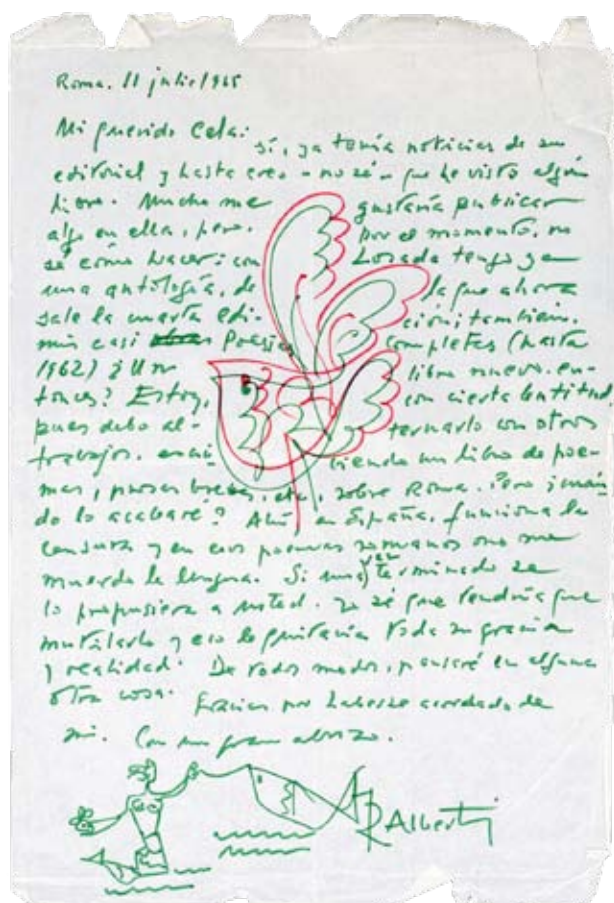 Roma. 11 julio/1965
Mi querido Cela:
sí, ya tenía noticias de su
editorial y hasta creo - no sé - que he visto algún
libro. Mucho me gustaría publicar
algo en ella, pero. por el momento, no
sé cómo hacer: con Losada tengo ya
una antología, de la que ahora
sale la cuarta edi- ción; también.
mis casi Poesías completas (hasta
1962) ¿Un libro nuevo. en-
tonces? Estoy, con cierta lentitud,
pues debo al- ternarlo con otros
trabajos. escri- biendo un libro de poe-
mas, prosas breves, etc, sobre Roma. Pero ¿cuán-
do lo acabaré? Ahí en España. funciona la
censura y en esos poemas romanos no me
muerdo la lengua. Si una vez terminado se
lo propusiera a usted. ya sé que tendría que
mutilarlo y eso le quitaría toda su gracia
y realidad. De todos modos, pensaré en alguna
otra cosa. Gracias por haberse acordado de
mí. Con un gran abrazo.
R Alberti